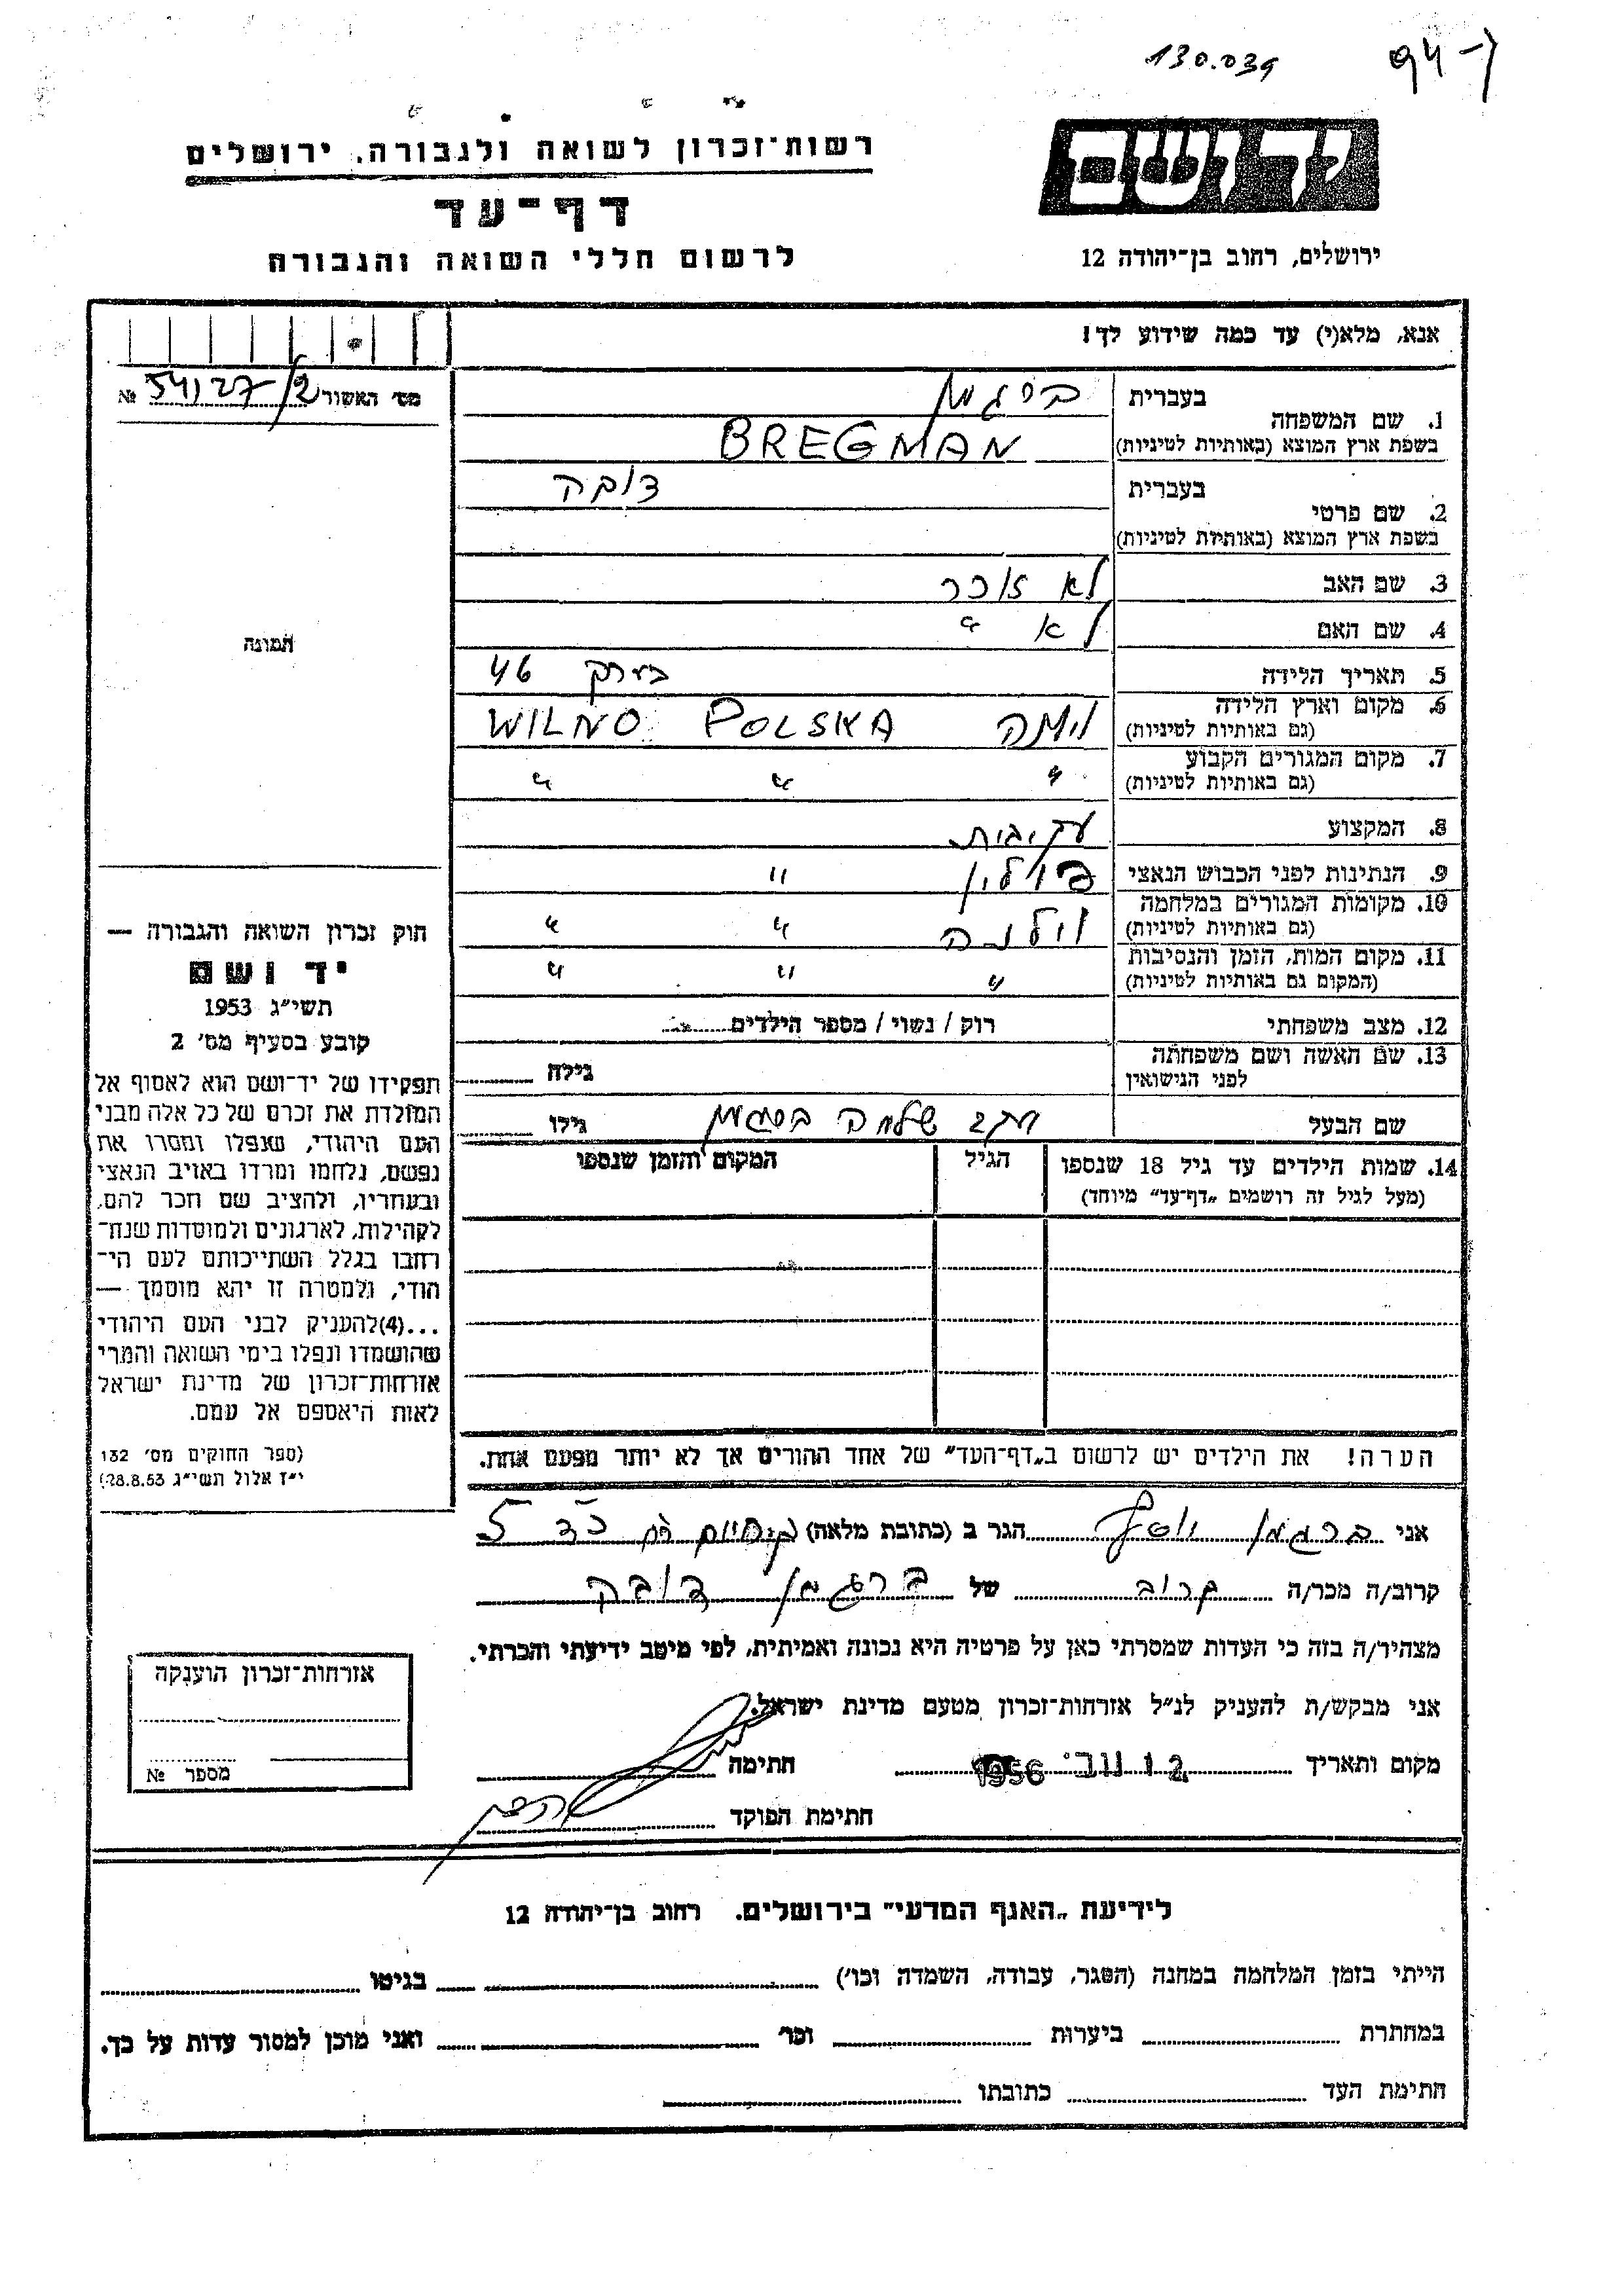 130.039
94-7
יד ושם
ירושלים, רחוב בן־יהודה 12
רשות־זכרון לשואה ולגבורה, ירושלים
דף־עד
לרשום חללי השואה והגבורה
אנא, מלא(י) עד כמה שידוע לך!
מס׳ האשור 54127/2 №
תמונה
1. שם המשפחה
בעברית ברגמן
בשפת ארץ המוצא (באותיות לטיניות) BREGMAN
2. שם פרטי
בעברית דובה
בשפת ארץ המוצא (באותיות לטיניות)
3. שם האב לא זוכר
4. שם האם לא "
5. תאריך הלידה בערך 46
6. מקום וארץ הלידה (גם באותיות לטיניות) וילנה WILNO POLSKA
7. מקום המגורים הקבוע (גם באותיות לטיניות) " " "
8. המקצוע
9. הנתינות לפני הכבוש הנאצי פולין "
10. מקומות המגורים במלחמה (גם באותיות לטיניות) וילנה " "
11. מקום המות, הזמן והנסיבות (המקום גם באותיות לטיניות) " " "
12. מצב משפחתי רוק / נשוי / מספר הילדים
13. שם האשה ושם משפחתה לפני הנישואין גילה
שם הבעל שלמה ברגמן גילו
14. שמות הילדים עד גיל 18 שנספו
(מעל לגיל זה רושמים „דף־עד” מיוחד)
הגיל
המקום והזמן שנספו
הערה! את הילדים יש לרשום ב„דף־העד” של אחד ההורים אך לא יותר מפעם אחת.
חוק זכרון השואה והגבורה —
יד ושם
תשי״ג 1953
קובע בסעיף מס׳ 2
תפקידו של יד־ושם הוא לאסוף אל
המולדת את זכרם של כל אלה מבני
העם היהודי, שנפלו ומסרו את
נפשם, נלחמו ומרדו באויב הנאצי
ובעוזריו, ולהציב שם וזכר להם,
לקהילות, לארגונים ולמוסדות שנח־
רחבו בגלל השתייכותם לעם הי־
הודי, ולמטרה זו יהא מוסמך —
...(4) להעניק לבני העם היהודי
שהושמדו ונפלו בימי השואה והמרי
אזרחות־זכרון של מדינת ישראל
לאות היאספם אל עמם.
(ספר החוקים מס׳ 132
י״ז אלול תשי״ג 28.8.53)
אני ברגמן יוסף הגר ב (כתובת מלאה)
קרוב/ה מכר/ה קרוב של ברגמן דובה
מצהיר/ה בזה כי העדות שמסרתי כאן על פרטיה היא נכונה ואמיתית, לפי מיטב ידיעתי והכרתי.
אני מבקש/ת להעניק לנ״ל אזרחות־זכרון מטעם מדינת ישראל.
מקום ותאריך 12 נוב׳ 1956 חתימה
חתימת הפוקד
אזרחות־זכרון הוענקה
מספר №
לידיעת „האגף המדעי” בירושלים. רחוב בן־יהודה 12
הייתי בזמן המלחמה במחנה (הסגר, עבודה, השמדה וכו׳) בגיטו
במחתרת ביערות וכו׳ ואני מוכן למסור עדות על כך.
חתימת העד כתובתו